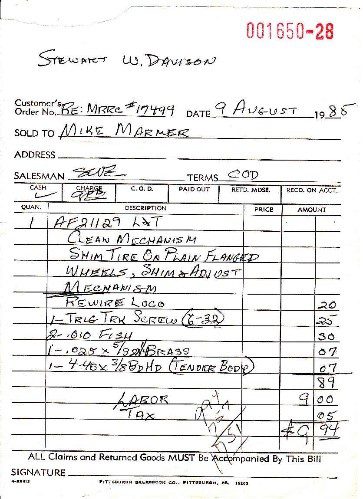 001650-28
STEWART W. DAVISON
Customer's
Order No. RE: MRRC #17499 DATE 9 AUGUST 1985
SOLD TO MIKE MARMER
ADDRESS
SALESMAN TERMS COD
CASH CHARGE C. O. D. PAID OUT RETD. MDSE. RECD. ON ACCT.
QUAN. DESCRIPTION PRICE AMOUNT
1 AF21129 L&T
CLEAN MECHANISM
SHIM TIRE ON PLAIN FLANGED
WHEELS, SHIM & ADJUST
MECHANISM
REWIRE LOCO 20
1- TRLG TRK SCREW (6-32) 25
2-.010 30
1-.025 x 5/32 BRASS 07
1- 4-40 x 3/8 HD (TENDER BODY) 07
89
LABOR 9 00
TAX 05
$9 94
ALL Claims and Returned Goods MUST Be Accompanied By This Bill
SIGNATURE
PITTSBURGH SALESBOOK CO., PITTSBURGH, PA.